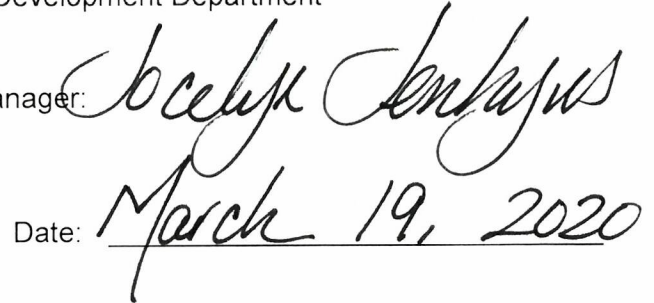 Development Department
anager: Jocelyn Jenkyns
Date: March 19, 2020